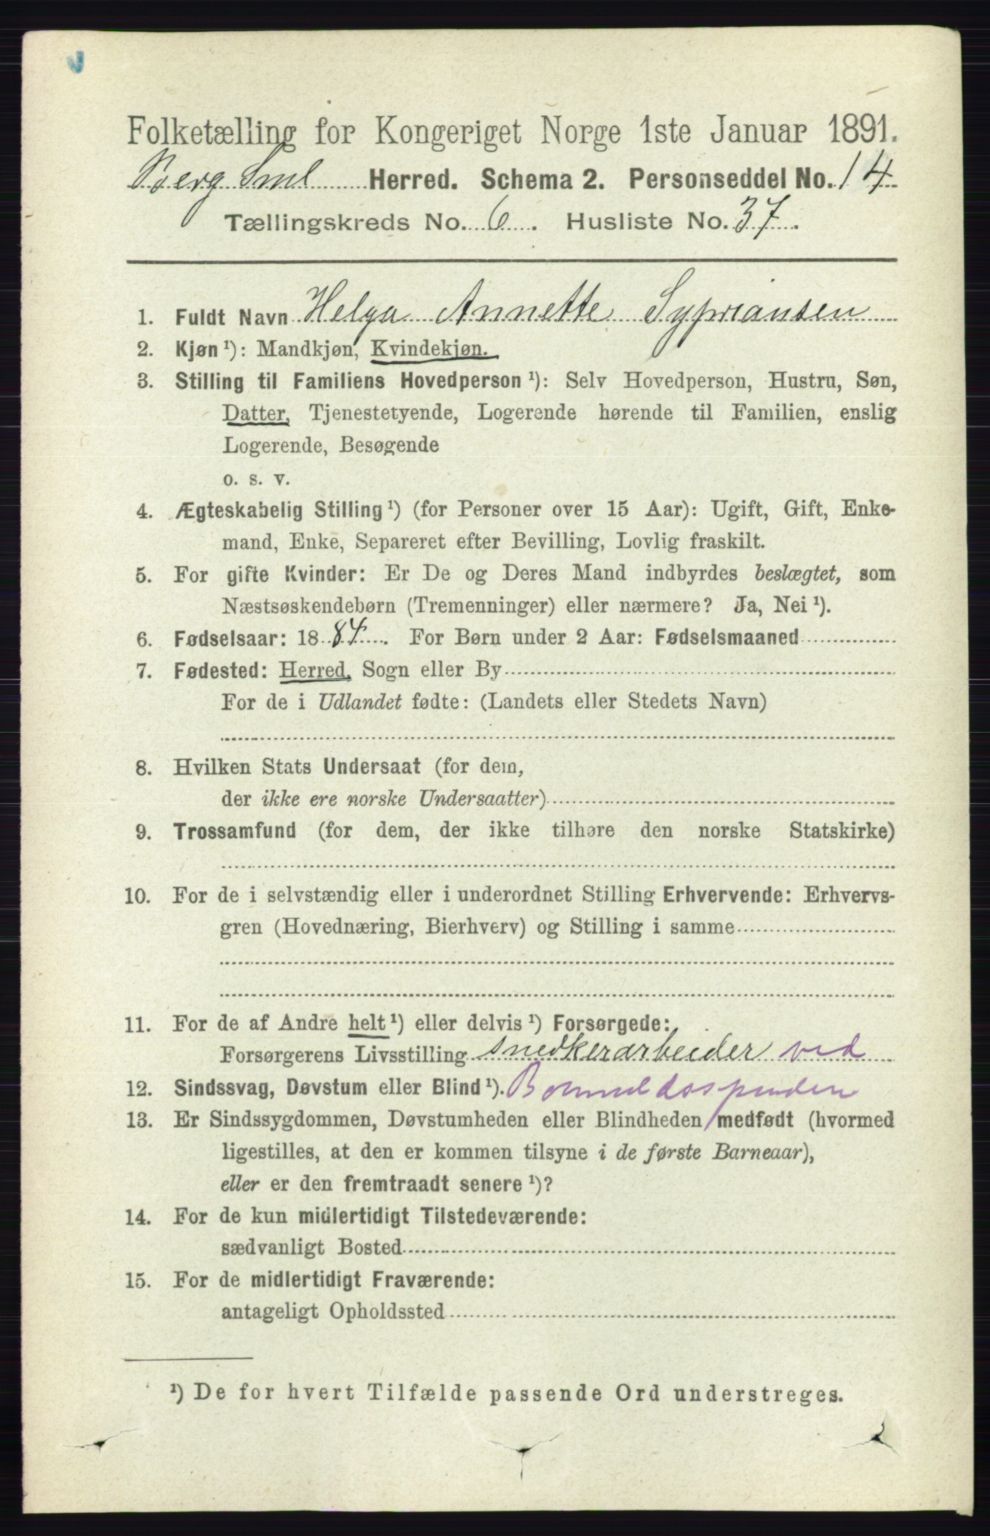 Folketælling for Kongeriget Norge 1ste Januar 1891.
Berg Sml Herred. Schema 2. Personseddel No. 14
Tællingskreds No. 6. Husliste No. 37.
1. Fuldt Navn Helga Annette Sypriansen
2. Kjøn ¹): Mandkjøn, Kvindekjøn.
3. Stilling til Familiens Hovedperson ¹): Selv Hovedperson, Hustru, Søn,
Datter, Tjenestetyende, Logerende hørende til Familien, enslig
Logerende, Besøgende
o. s. v.
4. Ægteskabelig Stilling ¹) (for Personer over 15 Aar): Ugift, Gift, Enke-
mand, Enke, Separeret efter Bevilling, Lovlig fraskilt.
5. For gifte Kvinder: Er De og Deres Mand indbyrdes beslægtet, som
Næstsøskendebørn (Tremenninger) eller nærmere? Ja, Nei ¹).
6. Fødselsaar: 1884. For Børn under 2 Aar: Fødselsmaaned
7. Fødested: Herred, Sogn eller By
For de i Udlandet fødte: (Landets eller Stedets Navn)
8. Hvilken Stats Undersaat (for dem,
der ikke ere norske Undersaatter)
9. Trossamfund (for dem, der ikke tilhøre den norske Statskirke)
10. For de i selvstændig eller i underordnet Stilling Erhvervende: Erhvervs-
gren (Hovednæring, Bierhverv) og Stilling i samme
11. For de af Andre helt ¹) eller delvis ¹) Forsørgede:
Forsørgerens Livsstilling snedkerarbeider ved
12. Sindssvag, Døvstum eller Blind ¹). Bomuldsspinderi
13. Er Sindssygdommen, Døvstumheden eller Blindheden medfødt (hvormed
ligestilles, at den er kommen tilsyne i de første Barneaar),
eller er den fremtraadt senere ¹)?
14. For de kun midlertidigt Tilstedeværende:
sædvanligt Bosted
15. For de midlertidigt Fraværende:
antageligt Opholdssted
¹) De for hvert Tilfælde passende Ord understreges.